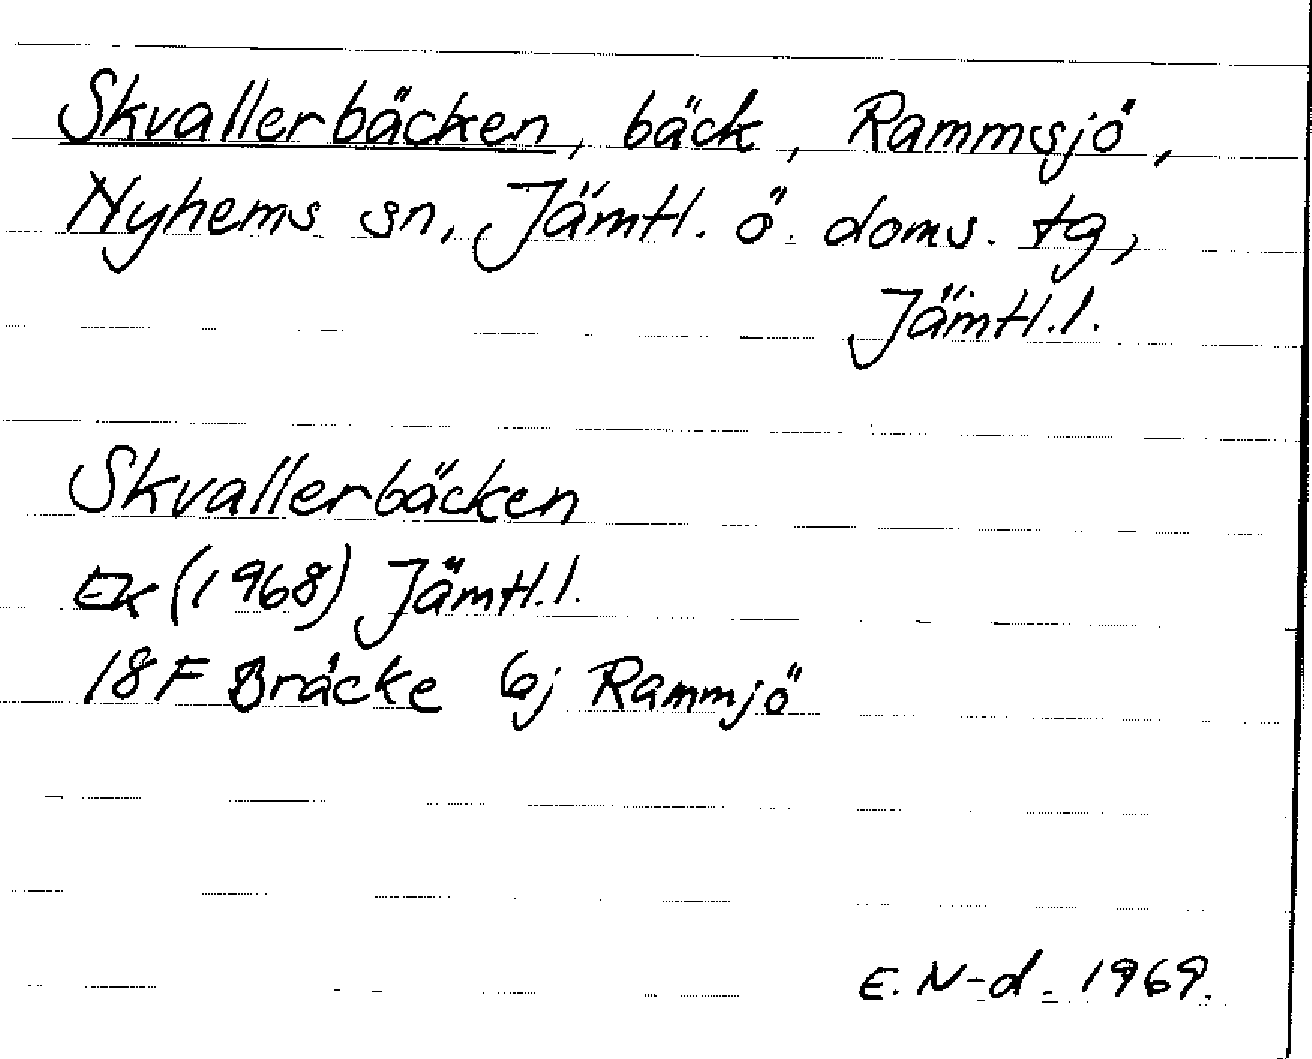 Skvallerbäcken, bäck, Rammsjö,
Nyhems sn, Jämtl. ö. doms. tg,
Jämtl.l.
Skvallerbäcken
Ek (1968) Jämtl.l.
18F Bräcke 6j Rammjö
E. N-d. 1969.